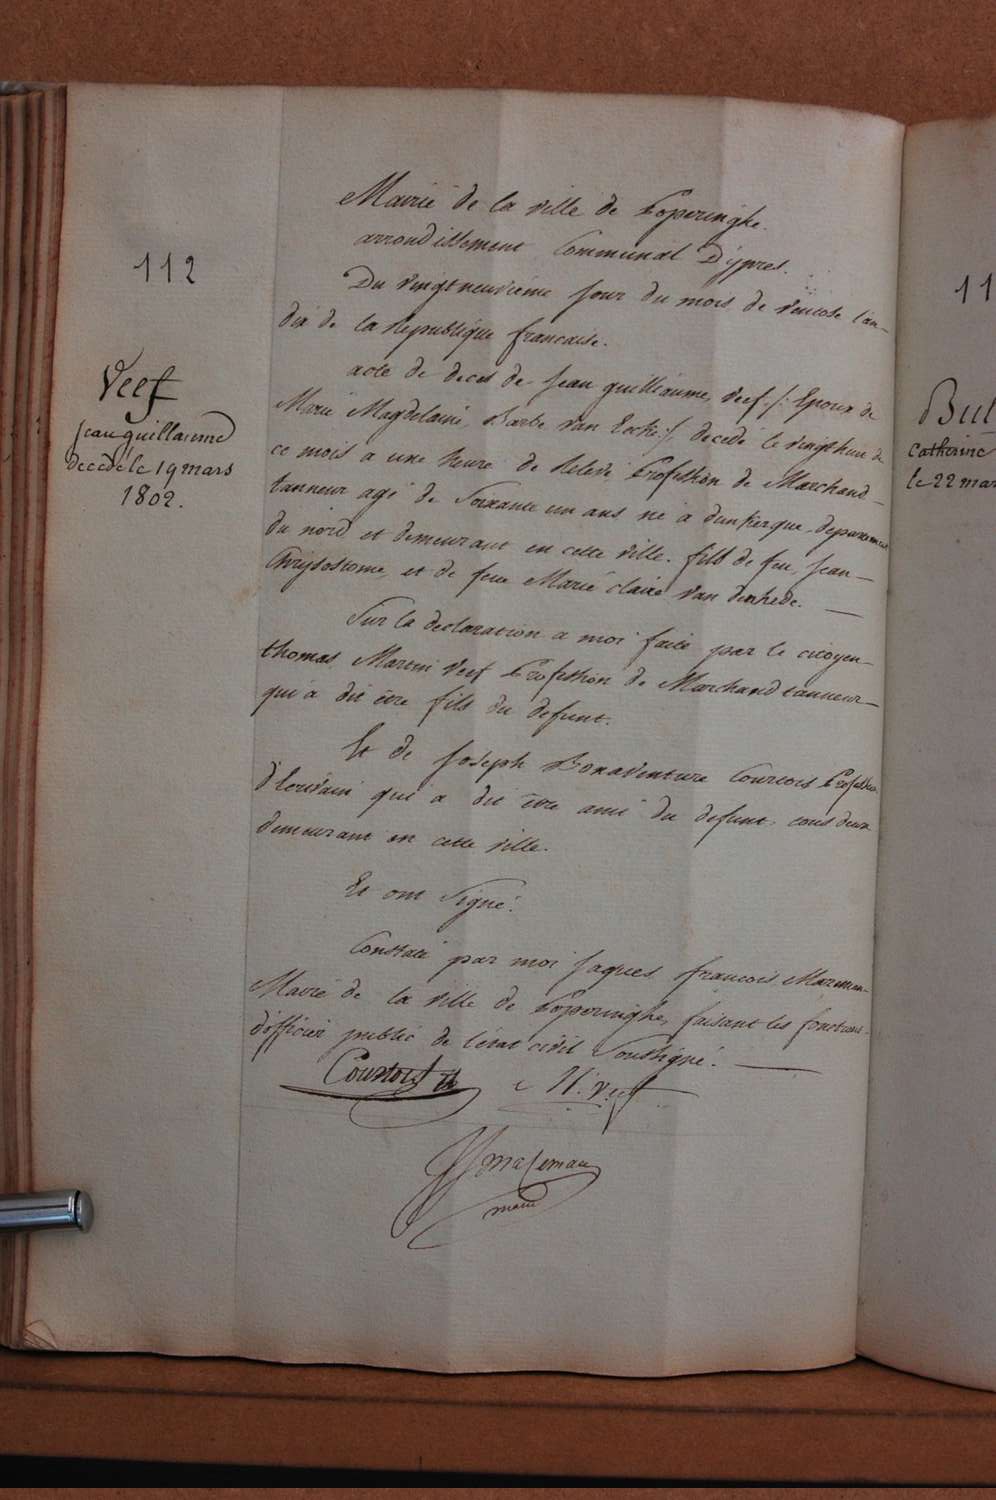 112
Veef
jean guillaume
decedé le 19 mars
1802.
Mairie de la ville de Poperinghe.
arrondissement Communal D'ypres.
Du vingtneuvieme jour du mois de ventose l'an
dix de la Republique francaise.
acte de deces de jean guilliaume Veef /: Epoux de
Marie Magdelaine Barbe Van Eecke :/ decedé le vingthuit de
ce mois a une heure de relevé Profession de Marchand
tanneur agé de Soixante un ans né a dunkerque departement
du nord et demeurant en cette ville. fils de feu jean
Chrysostome, et de feue Marie claire Van
Sur la declaration a moi faite par le citoyen
thomas Martin Veef Profession de Marchand tanneur
qui a dit être fils du defunt.
Et de Joseph Bonaventure Courtois Profession
d'Ecrivain qui a dit être ami du defunt. tous deux
demeurant en cette ville.
Et ont Signé.
Constaté par moi Jaques francois
Maire de la ville de Poperinghe, faisant les fonctions
d'officier public de l'etat civil Soussigné.
Courtois M. Veef
maire
11
But
Catherine
le 22 mar